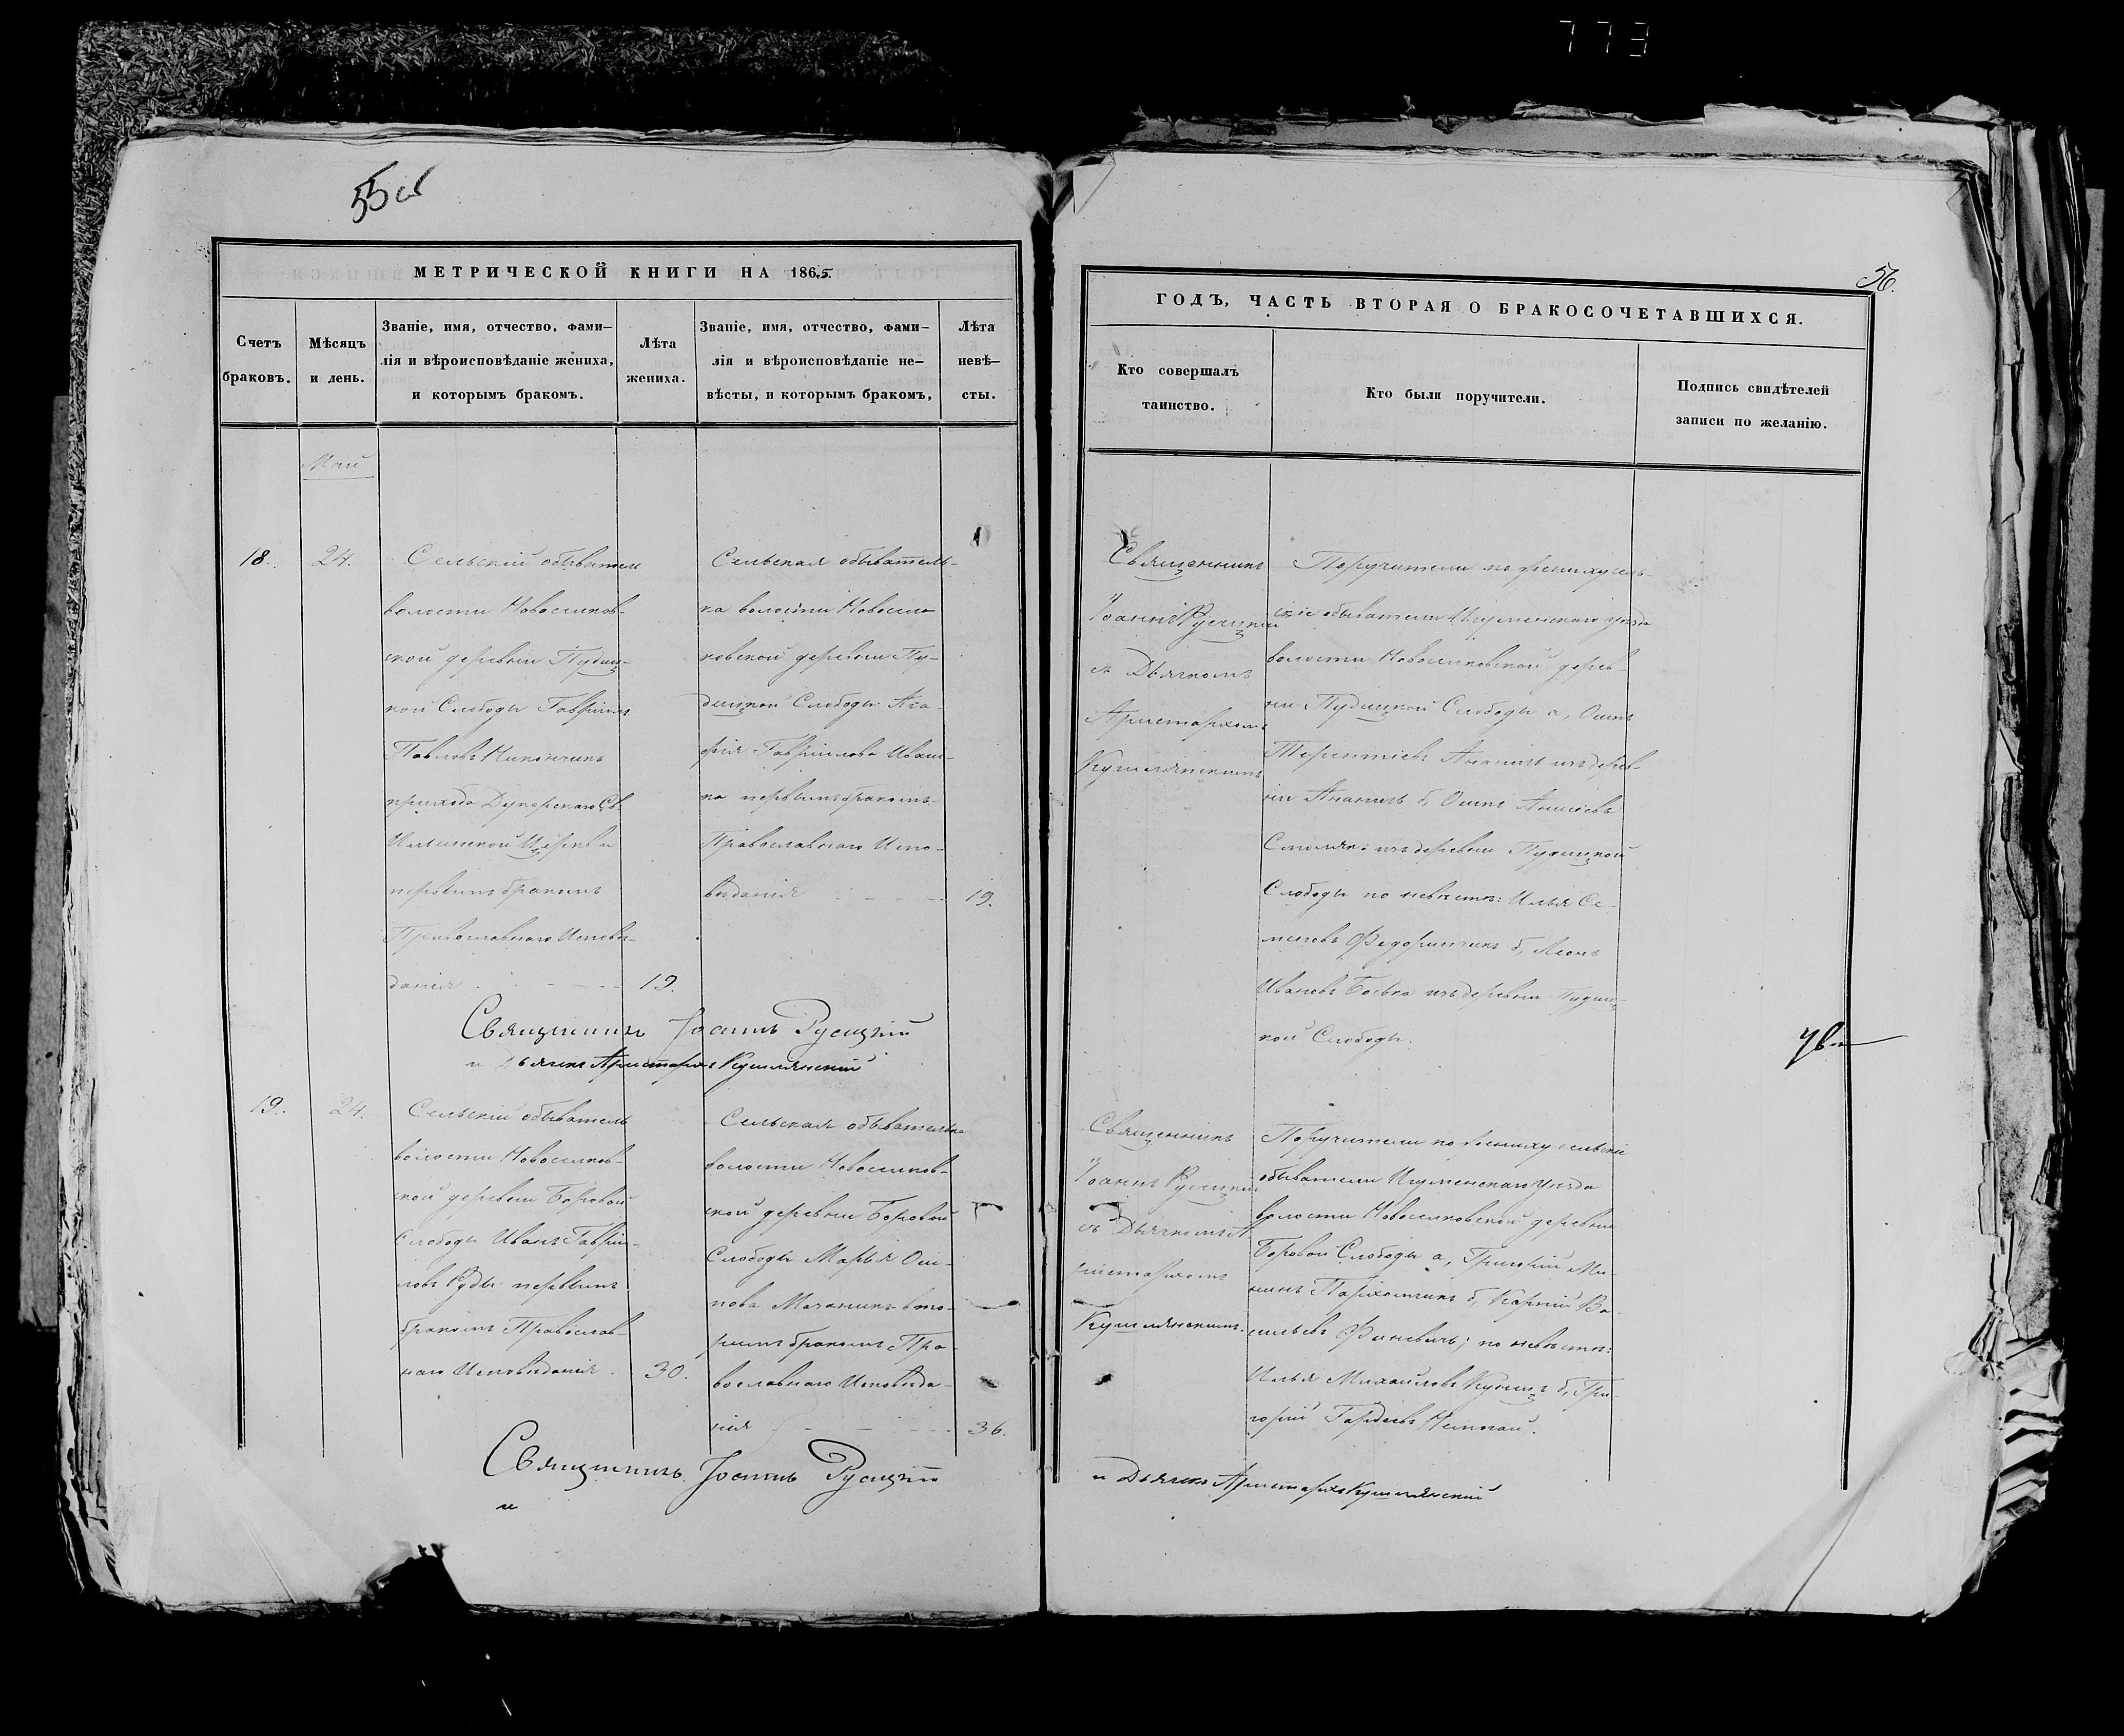 773
55 об
МЕТРИЧЕСКОЙ КНИГИ НА 1865.
Счетъ браковъ.
Мѣсяцъ и день.
Званіе, имя, отчество, фами-
лія и вѣроисповѣданіе жениха,
и которымъ бракомъ.
Лѣта жениха.
Званіе, имя, отчество, фами-
лія и вѣроисповѣданіе не-
вѣсты, и которымъ бракомъ,
Лѣта невѣ-
сты.
Май
18.
24.
Сельскій обыватель
волости Новоселков-
ской деревни Пудиц-
кой Слободы Гавріилъ
Павловъ
прихода Дукорскаго Св.
Ильинской Церкви
первымъ бракомъ
Православнаго Исповѣ-
данія
19.
Сельская обыватель-
ка волости Новосел-
ковской деревни Пу-
дицкой Слободы Ага-
фія Гавріилова
первымъ бракомъ
Православнаго Испо-
вѣданія
19.
Священникъ Іоаннъ Русицкій
и Дьячекъ Аристархъ Кушлянскій
19.
24.
Сельскій обыватель
волости Новоселков-
ской деревни Боровой
Слободы Иванъ Гаврі-
ловъ первымъ
бракомъ Православ-
наго Исповѣданія
30.
Сельская обывателька
волости Новоселков-
ской деревни Боровой
Слободы Марья Оси-
пова вто-
рымъ бракомъ Пра-
вославнаго Исповѣда-
нія
36.
Священникъ Іоаннъ Русицкій
и
56.
ГОДЪ, ЧАСТЬ ВТОРАЯ О БРАКОСОЧЕТАВШИХСЯ.
Кто совершалъ
таинство.
Кто были поручители.
Подпись свидѣтелей
записи по желанію.
Священникъ
Іоаннъ Русицкій
съ Дьячкомъ
Аристархомъ
Кушлянскимъ
Поручители по жениху сель-
скіе обыватели Игуменскаго уѣзда
волости Новоселковской дерев-
ни Пудицкой Слободы а, Осипъ
Терентіевъ изъ дерев-
ни б, Осипъ
изъ деревни Пудицкой
Слободы по невѣстѣ: Илья Се-
меновъ б, Леонъ
Ивановъ изъ деревни Пудиц-
кой Слободы.
Священникъ
Іоаннъ Русицкій
съ Дьячкомъ А-
ристархомъ
Кушлянскимъ.
Поручители по жениху сельскіе
обыватели Игуменскаго уѣзда
волости Новоселковской деревни
Боровой Слободы а, Григорій Ми-
нинъ б, Карпій Ва-
сильевъ по невѣстѣ:
Илья Михайловъ Куницъ б, Гри-
горій Гордѣевъ
и Дьячекъ Аристархъ Кушлянскій